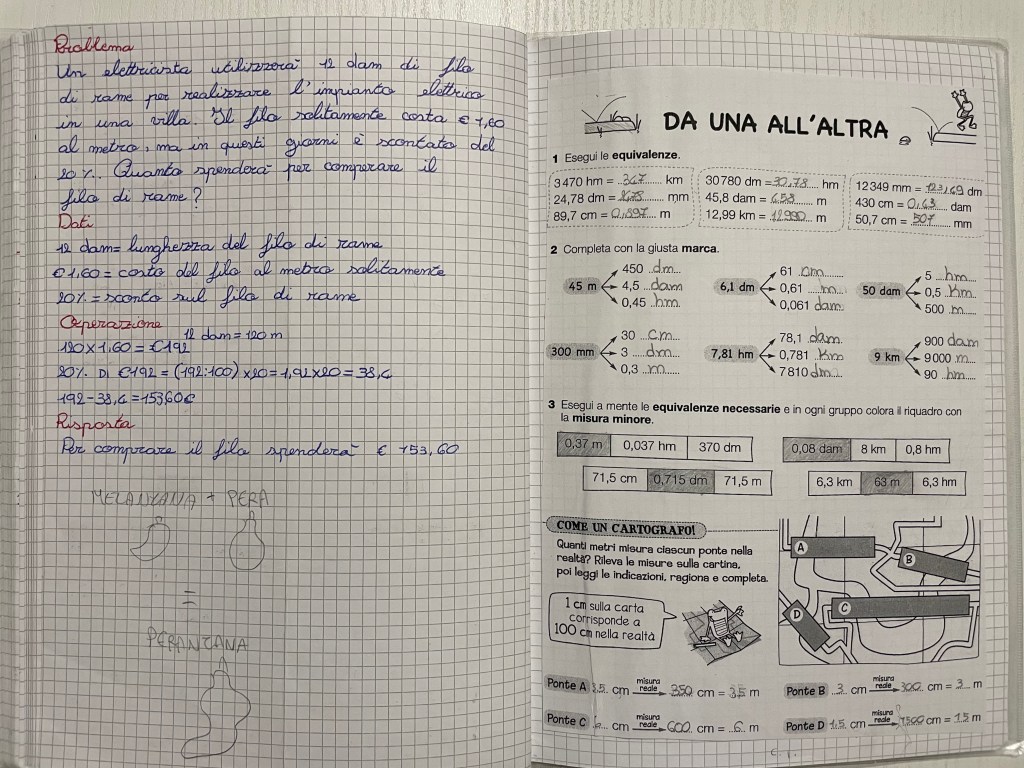 Problema
Un elettricista utilizzerà 12 dam di filo
di rame per realizzare l'impianto elettrico
in una villa. Il filo solitamente costa € 1,60
al metro, ma in questi giorni è scontato del
20%. Quanto spenderà per comperare il
filo di rame?
Dati
12 dam= lunghezza del filo di rame
€ 1,60 = costo del filo al metro solitamente
20% = sconto sul filo di rame
Operazione
12 dam = 120 m
120 x 1,60 = €192
20% DI €192 = (192:100) x 20 = 1,92 x 20 = 38,4
192-38,4 = 153,60€
Risposta
Per comprare il filo spenderà € 153,60
MELANZANA + PERA
=
PERANZANA
DA UNA ALL'ALTRA
1 Esegui le equivalenze.
3 470 hm = 347 km
24,78 dm = 2478 mm
89,7 cm = 0,897 m
30 780 dm = 30,78 hm
45,8 dam = 458 m
12,99 km = 12990 m
12 349 mm = 123,49 dm
430 cm = 0,43 dam
50,7 cm = 507 mm
2 Completa con la giusta marca.
45 m
450 dm
4,5 dam
0,45 hm
6,1 dm
61 cm
0,61 m
0,061 dam
50 dam
5 hm
0,5 km
500 m
300 mm
30 cm
3 dm
0,3 m
7,81 hm
78,1 dam
0,781 km
7 810 dm
9 km
900 dam
9 000 m
90 hm
3 Esegui a mente le equivalenze necessarie e in ogni gruppo colora il riquadro con
la misura minore.
0,37 m 0,037 hm 370 dm
0,08 dam 8 km 0,8 hm
71,5 cm 0,715 dm 71,5 m
6,3 km 63 m 6,3 hm
COME UN CARTOGRAFO!
Quanti metri misura ciascun ponte nella
realtà? Rileva le misure sulla cartina,
poi leggi le indicazioni, ragiona e completa.
1 cm sulla carta
corrisponde a
100 cm nella realtà
A
B
C
D
Ponte A 3,5 cm misura reale 350 cm = 3,5 m
Ponte B 3 cm misura reale 300 cm = 3 m
Ponte C 6 cm misura reale 600 cm = 6 m
Ponte D 1,5 cm misura reale 1500 cm = 1,5 m